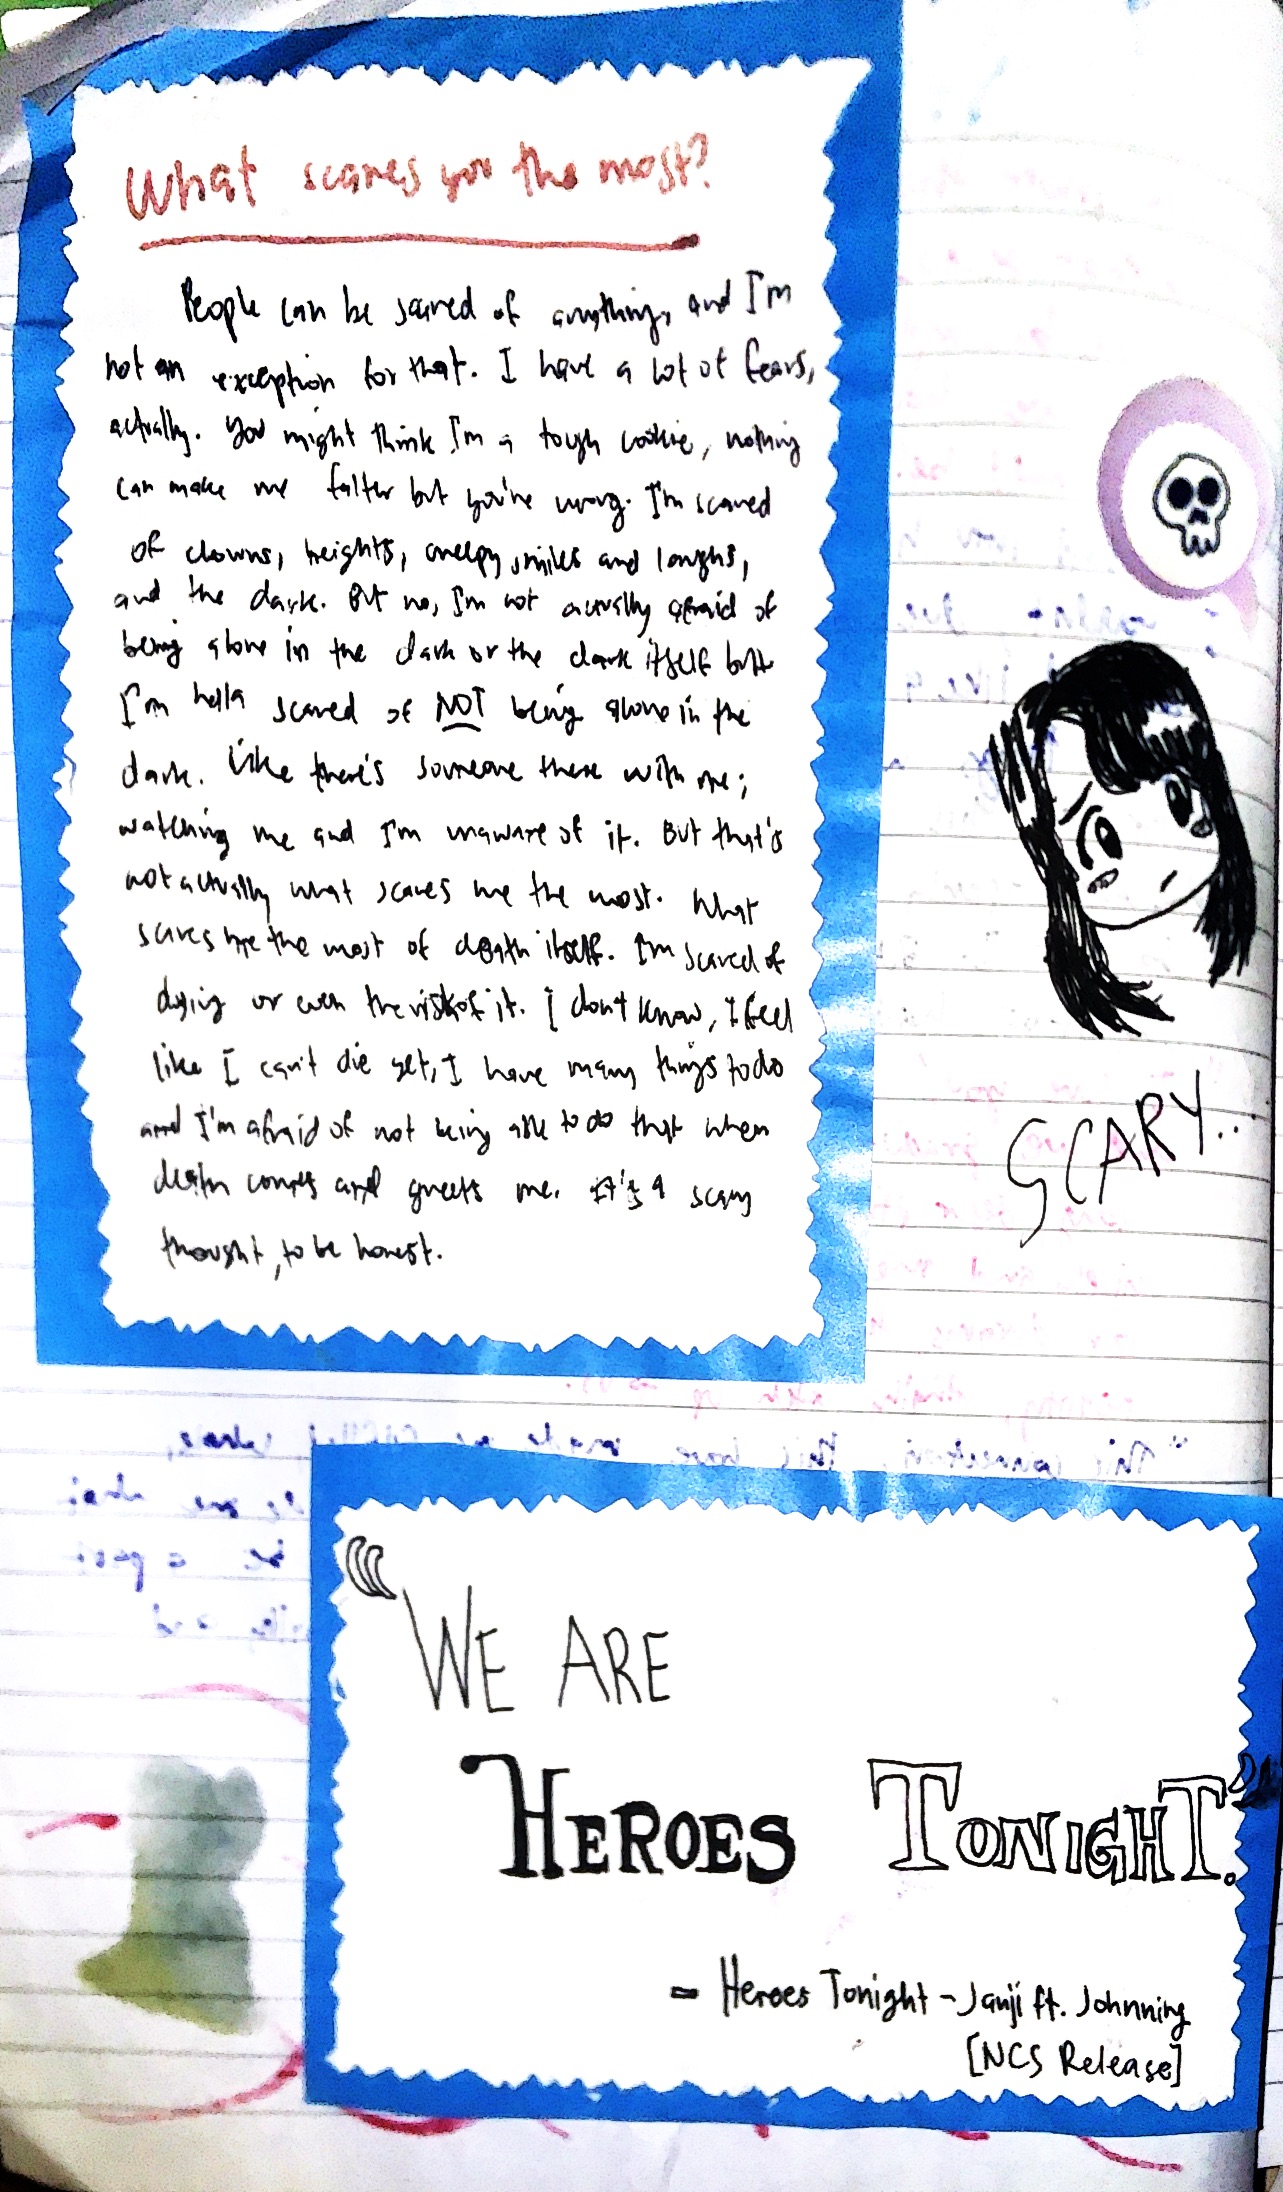 What scares you the most?
People can be scared of anything, and I'm
not an exception for that. I have a lot of fears,
actually. You might think I'm a tough cookie, nothing
can make me falter but you're wrong. I'm scared
of clowns, heights, creepy smiles and laughs,
and the dark. But no, I'm not actually afraid of
being alone in the dark or the dark itself but
I'm hella scared of NOT being alone in the
dark. Like there's someone there with me;
watching me and I'm unaware of it. But that's
not actually what scares me the most. What
scares me the most of death itself. I'm scared of
dying or even the risk of it. I don't know, I feel
like I can't die yet, I have many things to do
and I'm afraid of not being able to do that when
death comes and greets me. It's a scary
thought, to be honest.
SCARY...
"WE ARE
HEROES TONIGHT."
- Heroes Tonight - Janji ft. Johnning
[NCS Release]